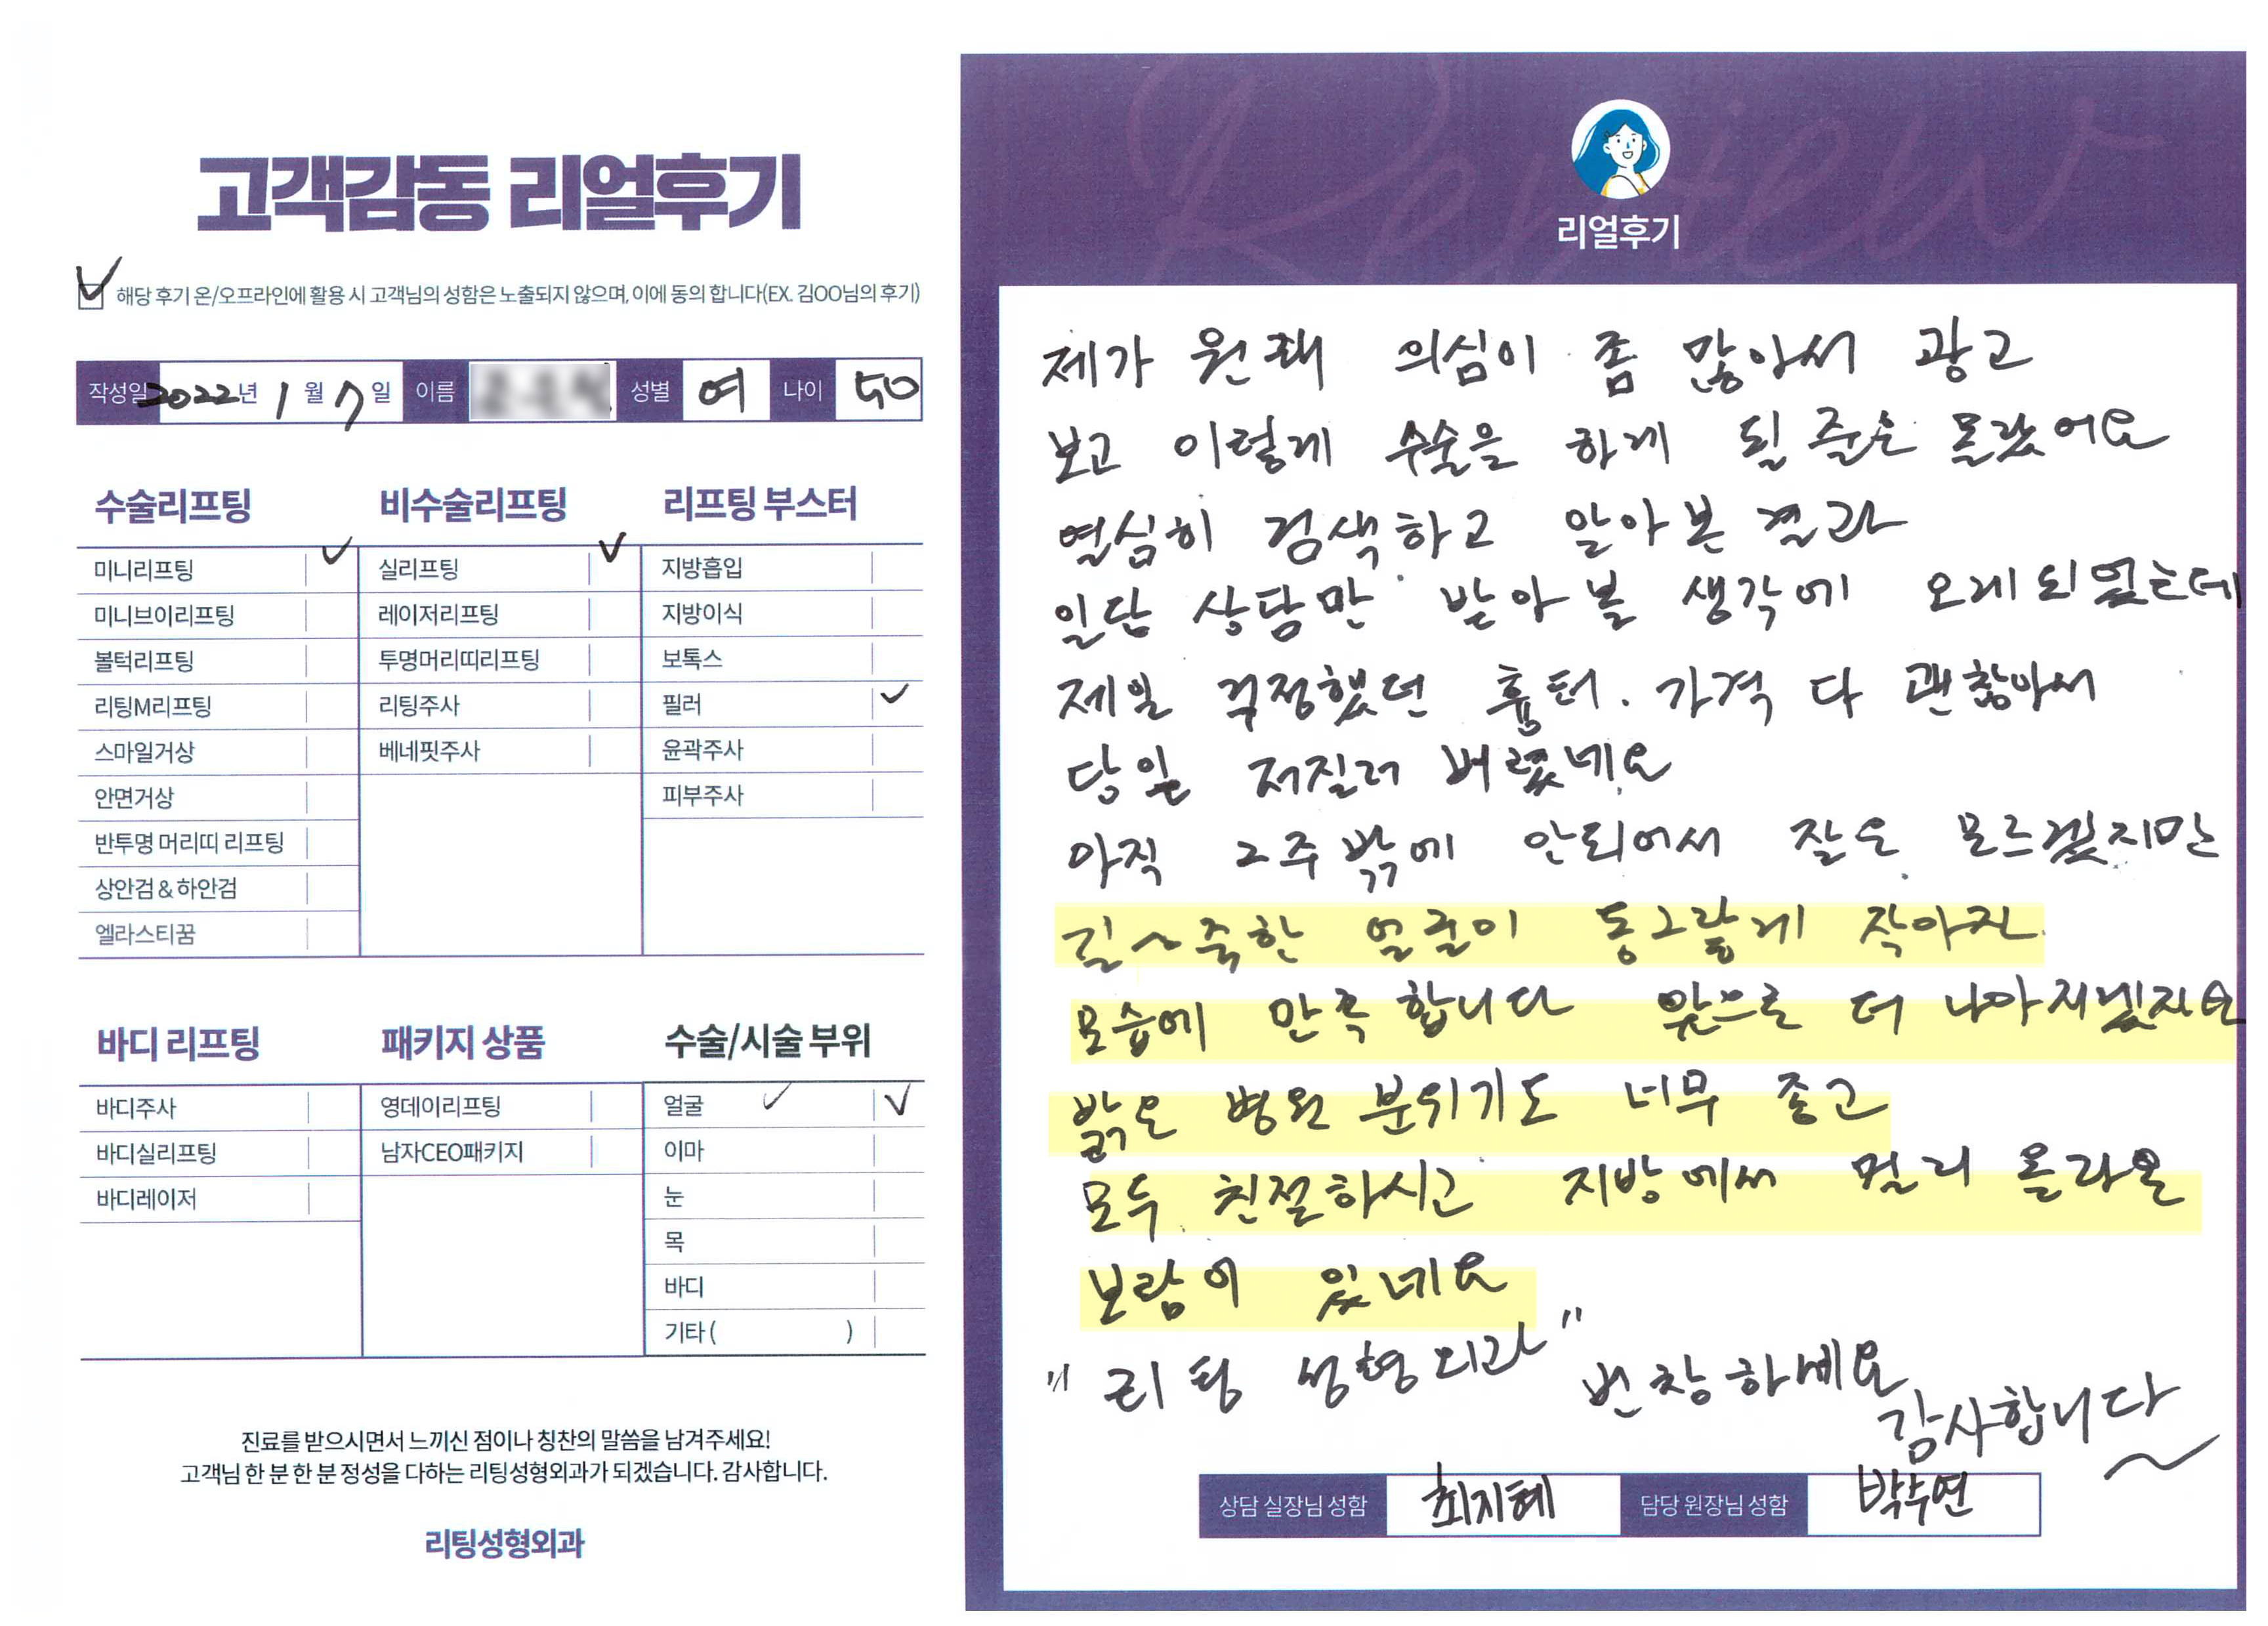 고객감동 리얼후기
해당 후기 온/오프라인에 활용 시 고객님의 성함은 노출되지 않으며, 이에 동의 합니다(EX. 김OO님의 후기)
작성일 2022년 1월 7일 이름 성별 여 나이 50
수술리프팅
미니리프팅
미니브이리프팅
볼턱리프팅
리팅M리프팅
스마일거상
안면거상
반투명 머리띠 리프팅
상안검 & 하안검
엘라스티꿈
비수술리프팅
실리프팅
레이저리프팅
투명머리띠리프팅
리팅주사
베네핏주사
리프팅 부스터
지방흡입
지방이식
보톡스
필러
윤곽주사
피부주사
바디 리프팅
바디주사
바디실리프팅
바디레이저
패키지 상품
영데이리프팅
남자CEO패키지
수술/시술 부위
얼굴
이마
눈
목
바디
기타 ( )
진료를 받으시면서 느끼신 점이나 칭찬의 말씀을 남겨주세요!
고객님 한 분 한 분 정성을 다하는 리팅성형외과가 되겠습니다. 감사합니다.
리팅성형외과
Review
리얼후기
제가 원래 의심이 좀 많아서 광고
보고 이렇게 수술을 하게 될 줄은 몰랐어요
열심히 검색하고 알아본 결과
일단 상담만 받아 볼 생각에 오게되었는데
제일 걱정했던 흉터. 가격 다 괜찮아서
당일 저질러 버렸네요
아직 2주 밖에 안되어서 잘은 모르겠지만
길~쭉한 얼굴이 동그랗게 작아진
모습에 만족합니다 앞으로 더 나아지겠지요
밝은 병원 분위기도 너무 좋고
모두 친절하시고 지방에서 멀리 올라온
보람이 있네요
"리팅 성형외과" 번창하세요
감사합니다~
상담 실장님 성함 최지혜 담당 원장님 성함 박수연